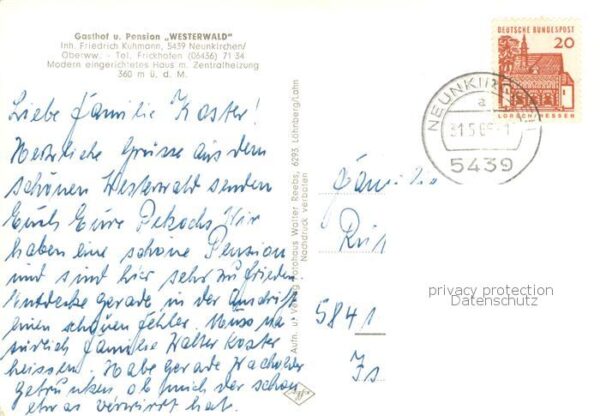 Gasthof u. Pension „WESTERWALD"
Inh. Friedrich Kuhmann, 5439 Neunkirchen/
Oberww. - Tel. Frickhofen (06436) 71 34
Modern eingerichtetes Haus m. Zentralheizung
360 m ü. d. M.
Liebe Familie Koster!
Herzliche Grüsse aus dem
schönen Westerwald senden
Euch Eure Pekochs. Wir
haben eine schöne Pension
und sind hier sehr zufrieden
Entdecke gerade in der Anschrift
einen schönen Fehler. Muss na-
türlich Familie Walter Koster
heissen. Habe gerade Wacholder
getrunken ob mich der schon
etwas verwirrt hat.
Aufn. u. Verlag Fotohaus Walter Reebs, 6293 Löhnberg/Lahn
Nachdruck verboten
DEUTSCHE BUNDESPOST
20
LORSCH/HESSEN
NEUNKIRCHEN
a
31.5.
5439
Familie
5841
Is
privacy protection
Datenschutz